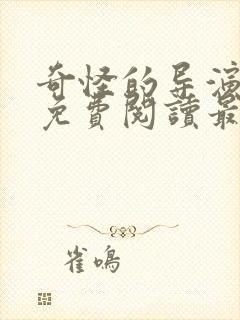 奇怪的导演
免費閱讀最
雀鳴